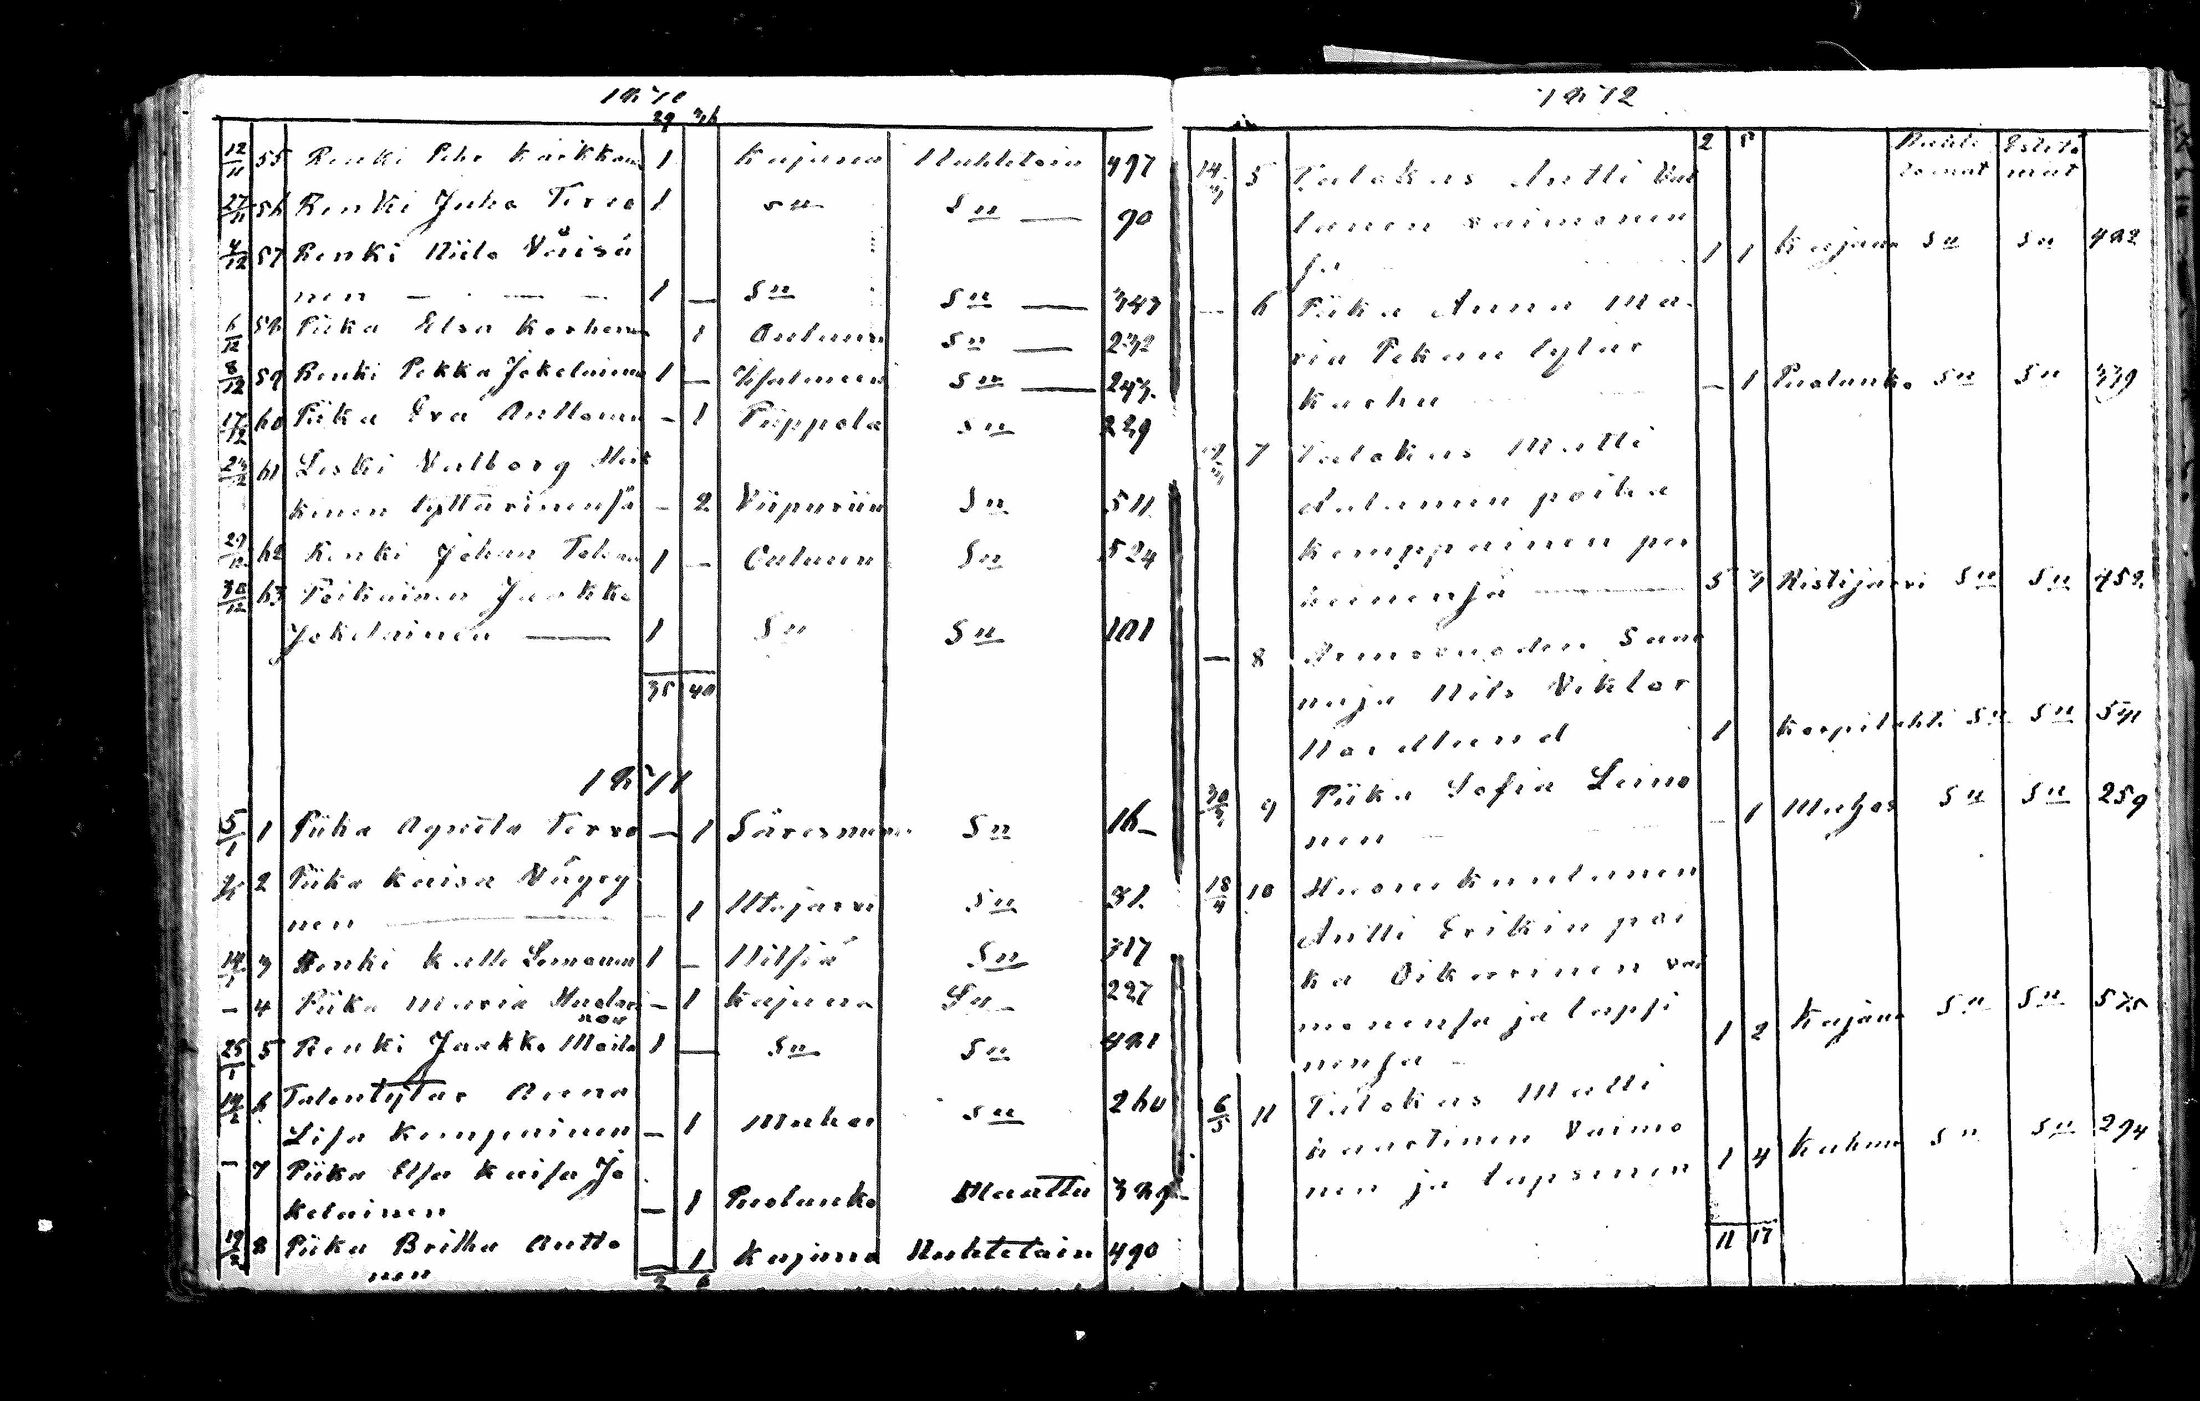 1870
29 36
12/11 55 Renki Pehr Karkkain 1 Kajana Nuhtetoin 497
27/11 56 Renki Juho Tervo 1 S" S" — 90
4/12 57 Renki Niilo Väisä
nen — — — 1 — S" S" — 343
6/12 58 Piika Elsa Korhonen 1 Ouluun S" — 232
8/12 59 Renki Pekka Jokelainen 1 — S" — 243
17/12 60 Piika Eva Anttonen — 1 Piippola S" 229
23/12 61 Leski Valborg
kinen tyttärinensä — 2 Viipuriin S" 511
29/12 62 Renki Johan 1 — Ouluun S" 524
30/12 63 Poikainen Jaakko
Jokelainen — 1 S" S" 101
35 40
1871
5/1 1 Piika Agneta Tervo — 1 Säresniemi S" 16
2 Piika Kaisa Väyry
nen — 1 Utajärvi S" 31
14/1 3 Renki Kalle 1 — S" 317
— 4 Piika Maria — 1 Kajana S" 227
25/1 5 Renki Jaakko 1 — S" S" 421
14/2 6 Talontytär Anna
Lisa Kemppainen — 1 Muhos S" 260
— 7 Piika Elsa Kaisa Jo
kelainen — 1 Puolanko 329
19/2 8 Piika Britha Antto 1 Kajana Nuhtetoin 490
nen
2 6
1872
2 5 Nuhti Estet
tomat mät
14/3 5 Talokas Antti
tanen vaimonen
sa 1 1 Kajana S" S" 422
— 6 Piika Anna Ma-
ria Pekan tytär
Karhu — 1 Puolanko S" S" 339
7 Talokas Matti
Antamin poika
Kemppainen per
heinensä — 5 3 Ristijärvi S" S" 452
— 8 Armovuoden Saar
naja Nils Viktor
Nordlund 1 Korpilahti S" S" 541
30/3 9 Piika Sofia Leino
nen — 1 Muhos S" S" 259
18/4 10 Huonekuntanen
Antti Erikin poi
ka Oikarinen vai
monensa ja lapsi
nensa 1 2 Kajana S" S" 575
6/5 11 Talokas Matti
Kaartinen Vaimo
nen ja lapsinen 1 4 Kuhmo S" S" 294
11 17